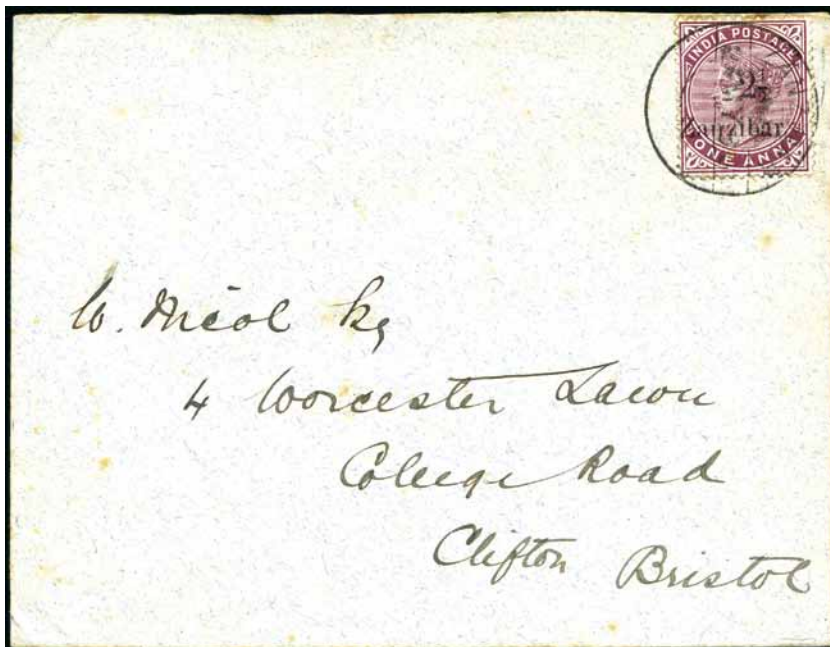 INDIA POSTAGE
2½
Zanzibar
ONE ANNA
W. Nicol Esq
4 Worcester Lawn
College Road
Clifton Bristol